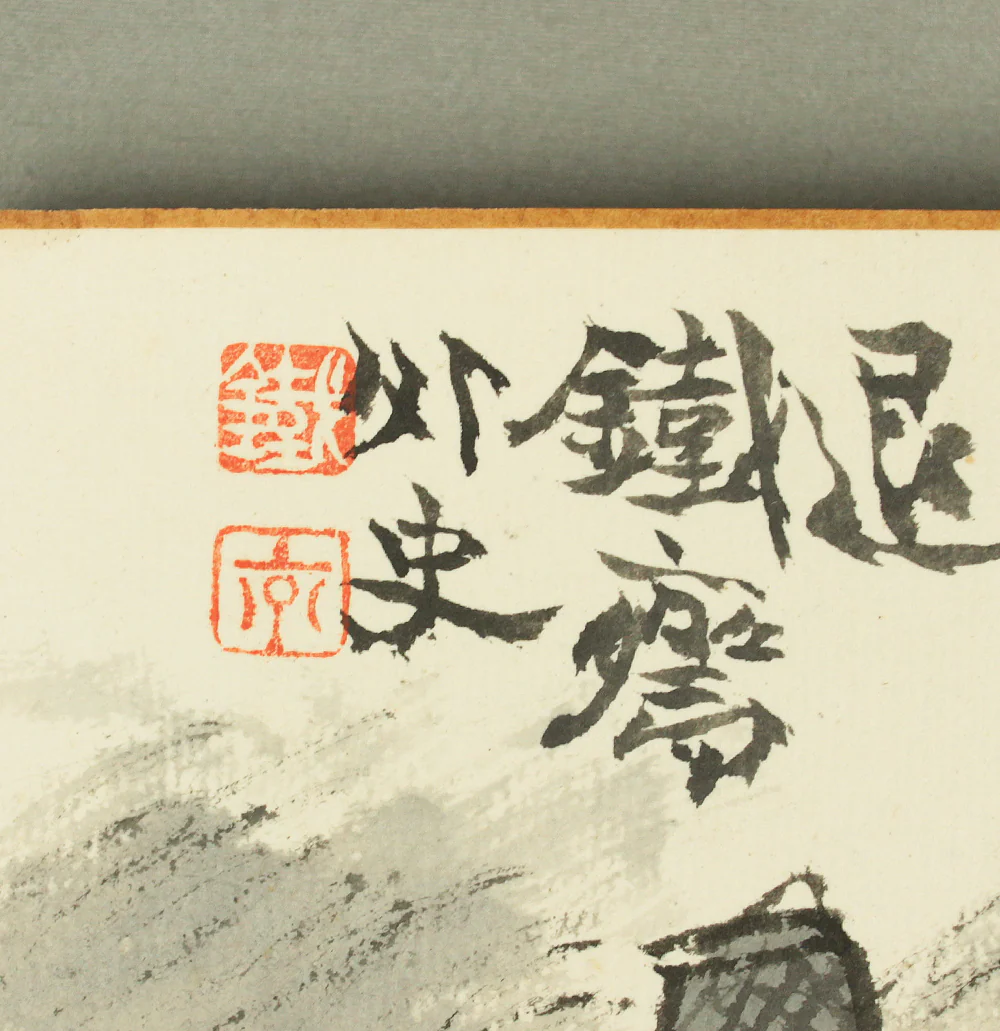 退
鐵齋
外史
鐵
京